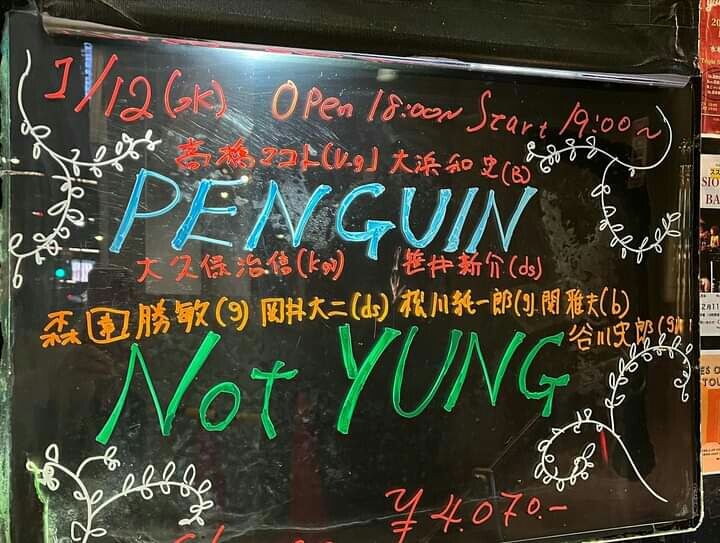 1/12(水) Open 18:00~ Start 19:00~
高橋マコト(V.g) 大浜和史(B)
PENGUIN
大久保治信(key) 笹井新介(ds)
森園勝敏(g) 岡井大二(ds) 松川純一郎(g) 関雅夫(b)
谷川史郎(g)
Not YUNG
¥4.070.-